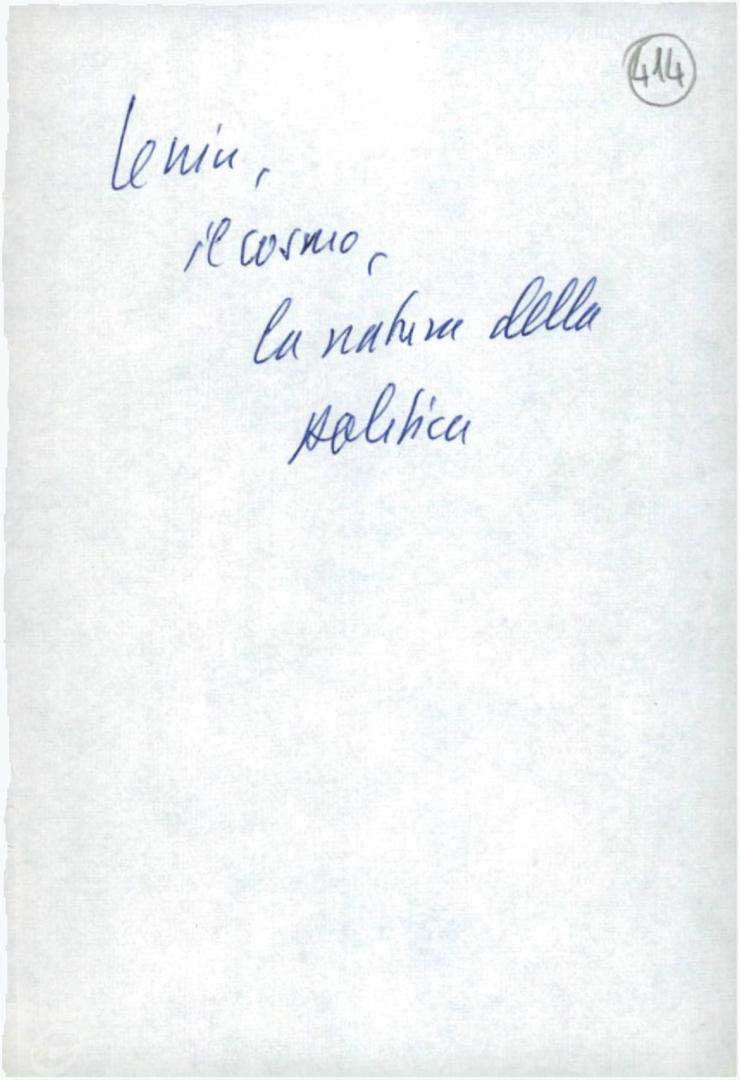 414
Lenin,
il cosmo,
la natura della
politica